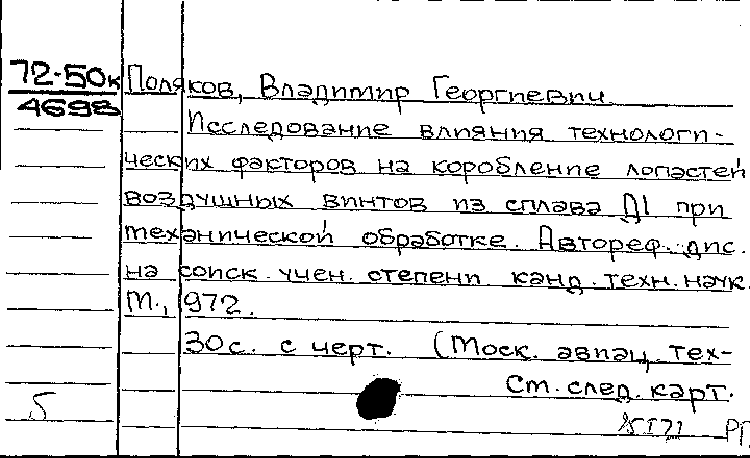 72-50к Поляков, Владимир Георгиевич
4698
Исследование влияния технологи-
ческих факторов на коробление лопастей
воздушных винтов из сплава Д1 при
механической обработке. Автореф. дис.
на соиск. учен. степени канд. техн. наук.
М., 1972.
30с. с черт. (Моск. авиац. тех-
См. след. карт.
5